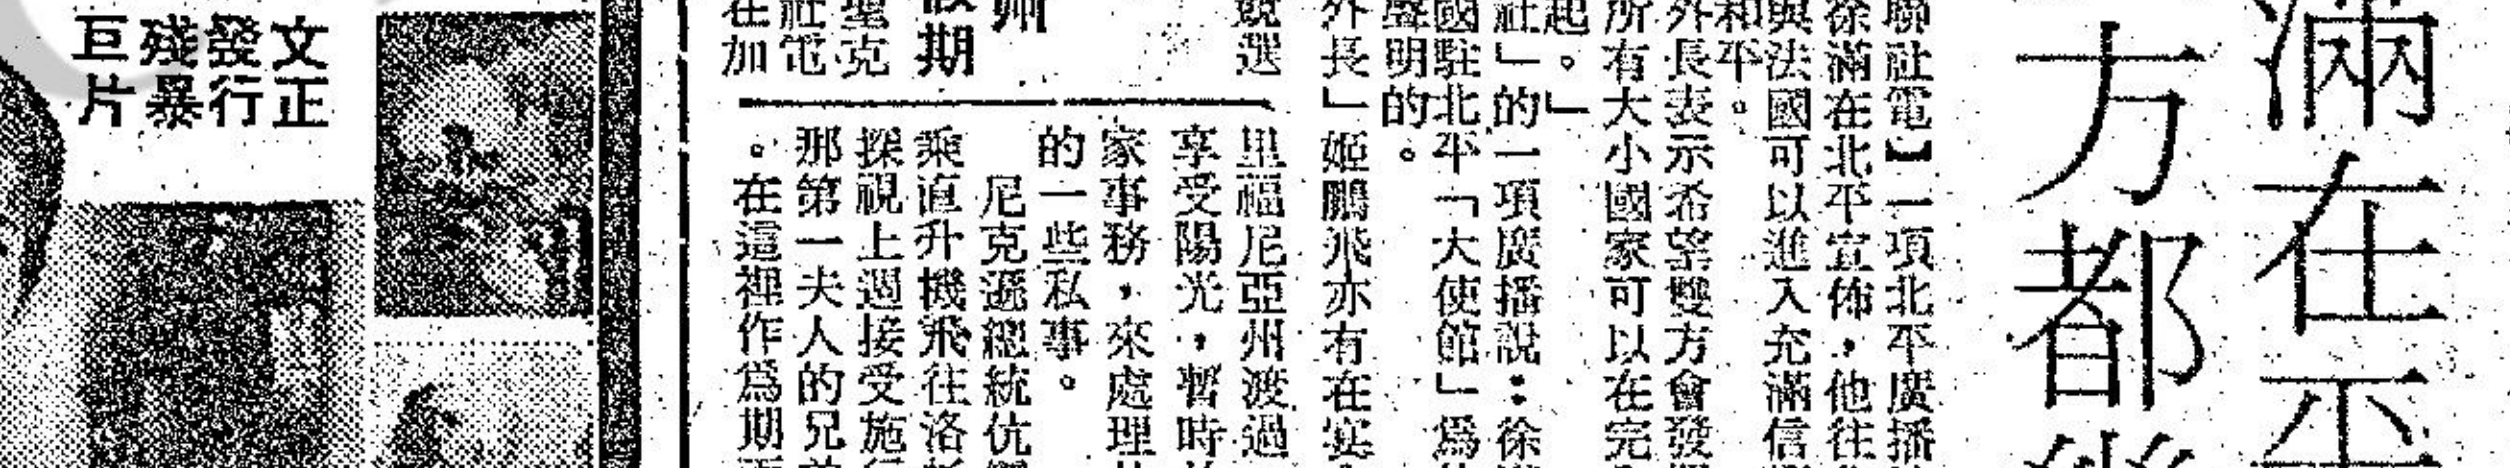 滿在
方都
聯社電】一項北平廣播
徐滿在北平宣佈，他往
與法國可以進入充滿信
和平。
外長表示希望雙方會發
所有大小國家可以在完
起。」
社」的一項廣播說：徐
國駐北平「大使館」爲
聲明的。
外長」姬鵬飛亦有在宴
競選
里福尼亞州渡過
享受陽光，暫時
家事務，來處理
的一些私事。
尼克遜總統伉
乘直升機飛往洛
探視上週接受施
那第一夫人的兄
。在這裡作爲期
州
假期
聖克
社電
在加
文正
發行
殘暴
巨片